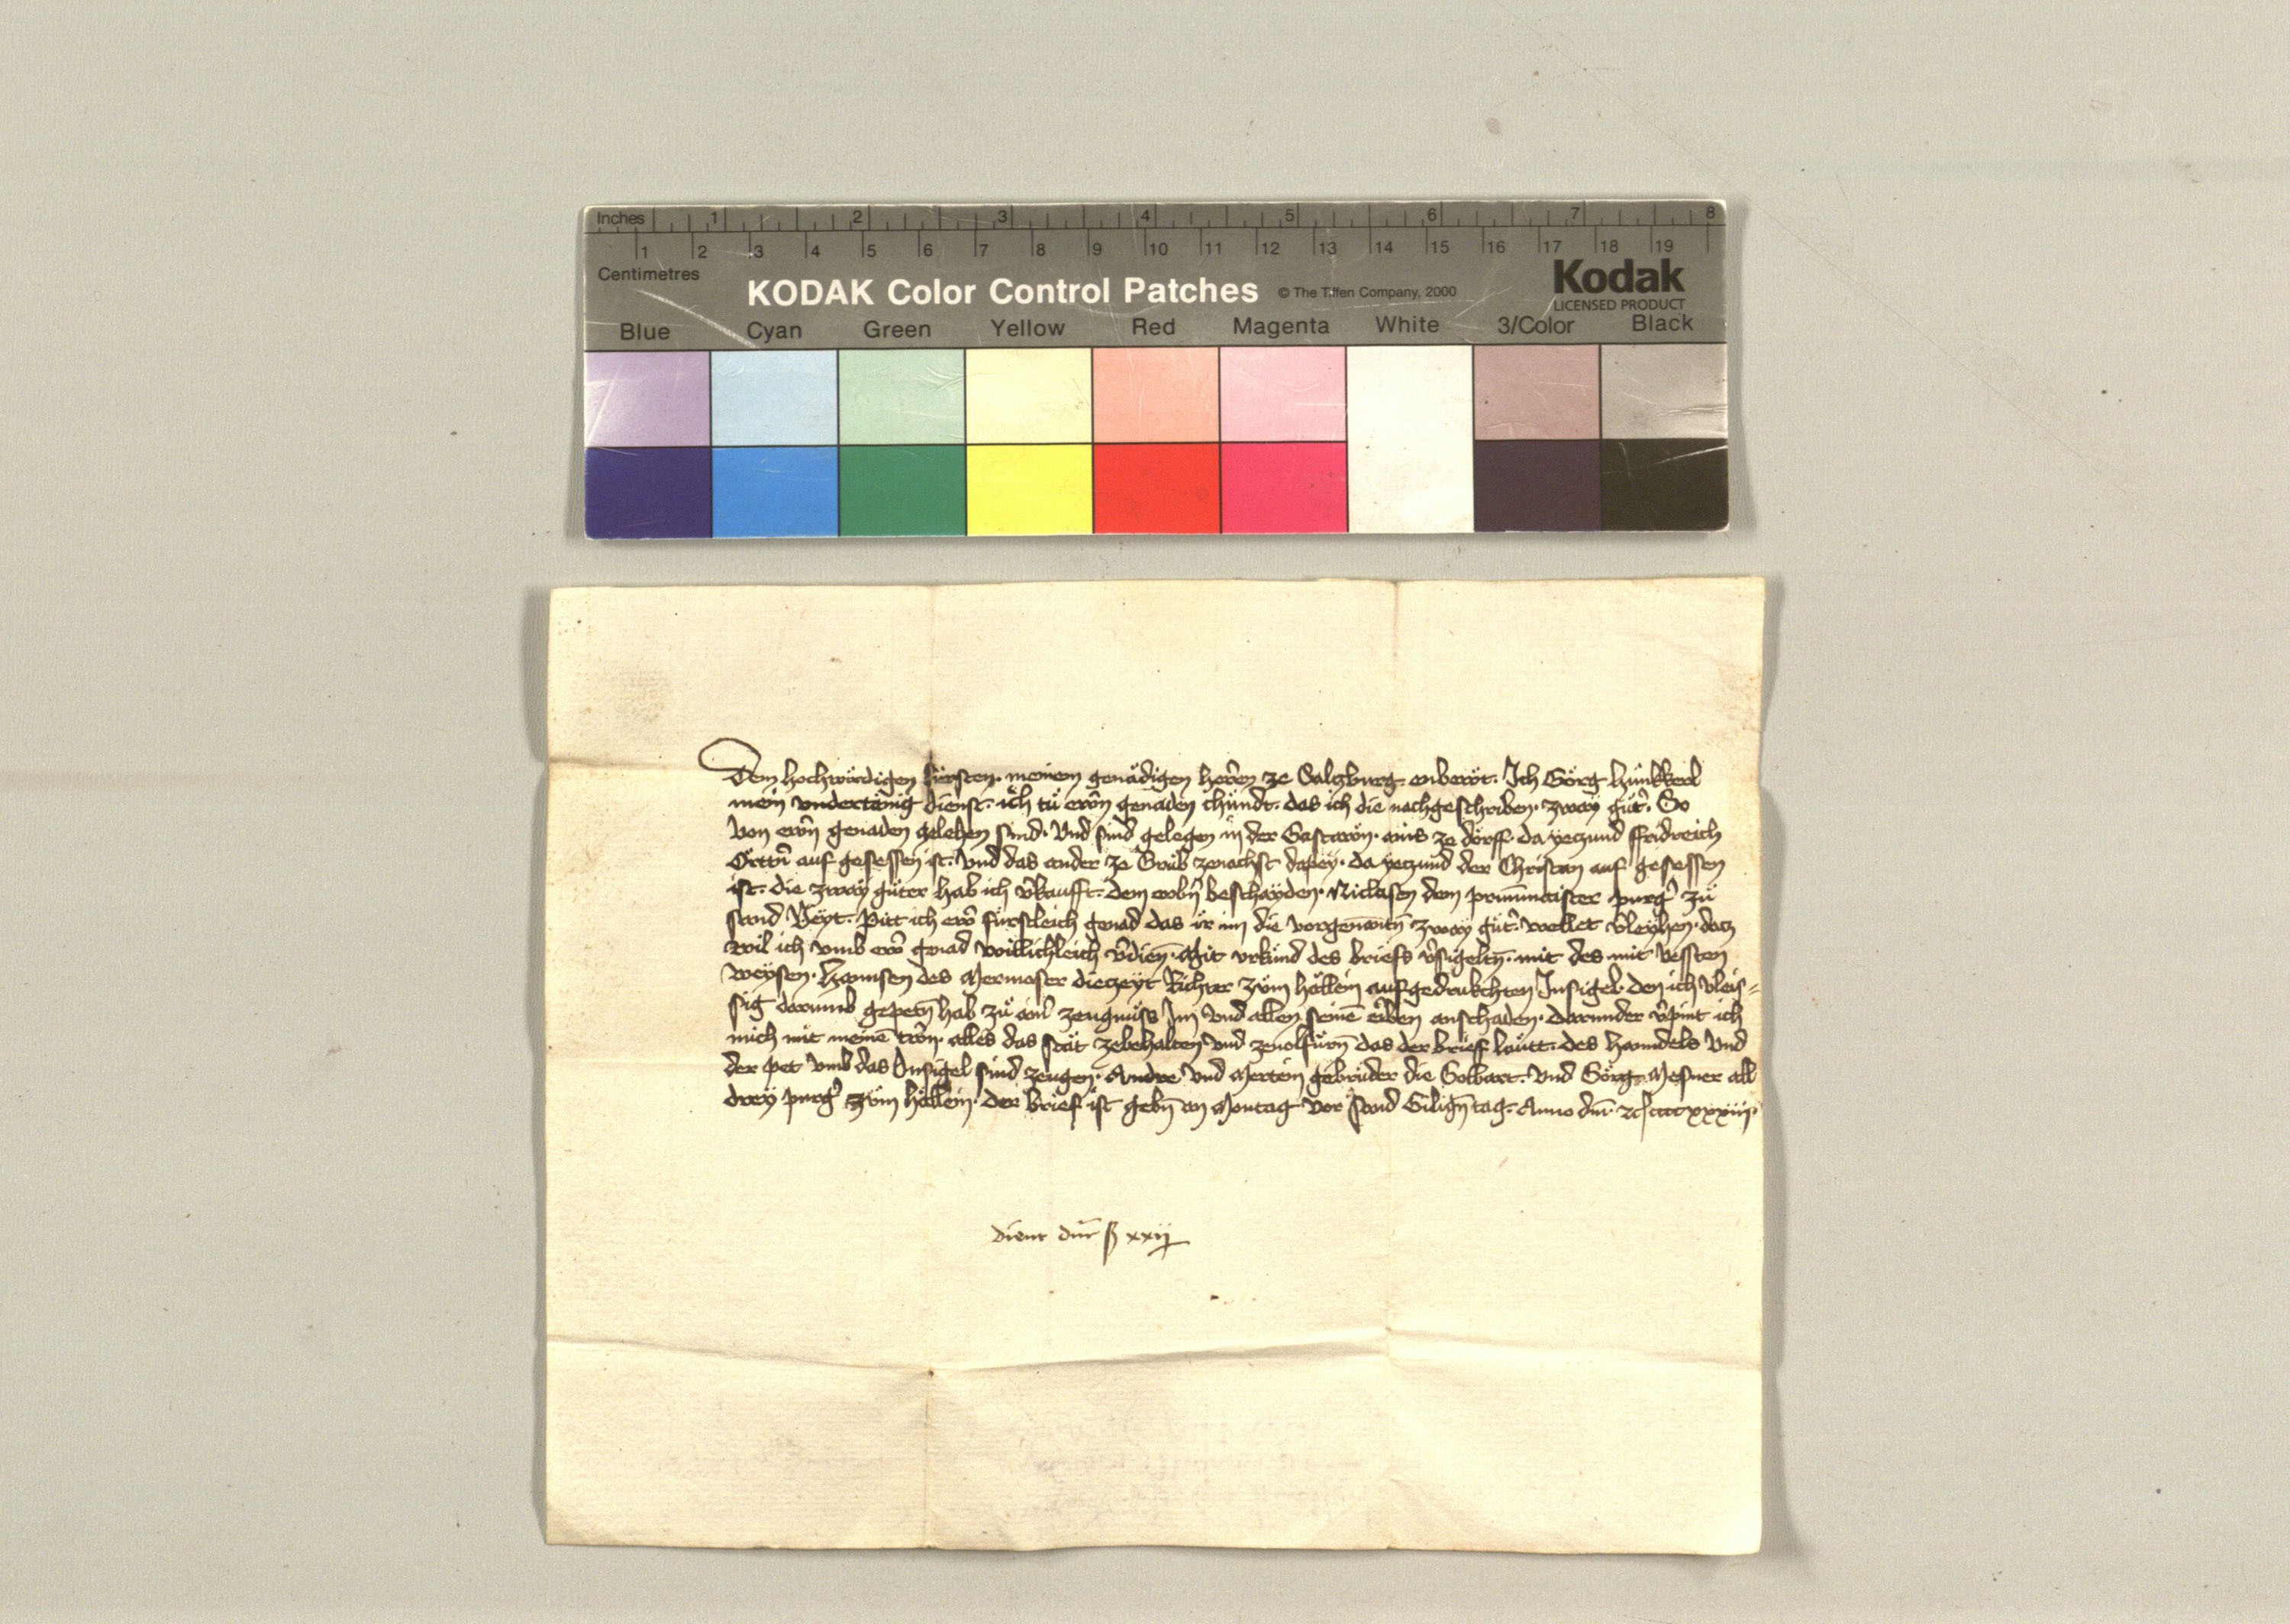 Inches 1 2 3 4 5 6 7 8
1 2 3 4 5 6 7 8 9 10 11 12 13 14 15 16 17 18 19
Centimetres
KODAK Color Control Patches © The Tiffen Company, 2000 Kodak
LICENSED PRODUCT
Blue Cyan Green Yellow Red Magenta White 3/Color Black
Dem hochwirdigen fürsten. meinem genädigen herren ze Salzburg. enbewt. Ich Görg hünkkerl
mein vndertänig dienst. ich tů ewrn genaden chündt. das ich die nachgeschriben. zway gütr. So
von ewrn genaden zelehen sind. Vnd sind gelegen in der Gastewn. ains ze dörff. da yeczund ffridreich
auf gesessen ist. Vnd das ander ze Grůb zenachst dabey. da yeczund der Christan auf gesessen
ist. die zway güter hab ich v̂kaufft. dem erbn̄ beschayden. Niclasen dem purgr̂ zů
sand Veyt. Pitt ich ewr̂ fürstleich genad das ir im die vorgenātn̄ zway gütr. wellet v̂leyhen. daz
wil ich vmb ewr̂ genad willichleich v̂dien̄. Mit vrkund des briefs v̂sigeltn̄. mit des vessten
weysen. Hannsen des Mermoser dieczeyt Richter zům hällein aufgedrukchten Insigel. den ich vleis-
sig darumb gepetn̄ hab zů zeugnüss Im Vnd allen seinē erben anschaden. Darunder v̂pint ich
mich mit meinē trwn. alles das stät zebehalten vnd zeuolfürn̄ das der brieff lautt. des hanndels Vnd
der pet vmb das Insigel sind zeugen. Andre Vnd Merten gebrüder die Vnd Görg Mesner all
drey purgr̂ zům hällein. der brief ist gebn̄ an Montag vor sand Gilign̄ tag. Anno dm̄.
dient dn̄r ß xxij